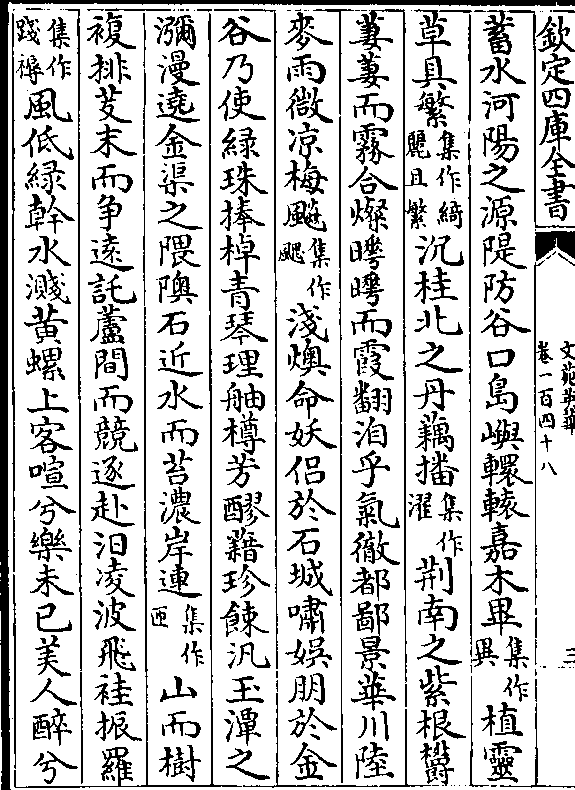 欽定四庫全書
文苑英華
卷一百四十八
三
蓄水河陽之源隄防谷口島嶼轘轅嘉木畢集作異植靈
草具繁集作綺麗且繁沉桂北之丹藕播集作濯荆南之紫根鬱
萋萋而霧合燦曄曄而霞翻洎乎氣徹都鄙景華川陸
麥雨微凉梅飈集作颸淺燠命妖侣於石城嘯娯朋於金
谷乃使緑珠捧棹青琴理舳樽芳醪藉珍餗汎玉潭之
瀰漫遶金渠之隈隩石近水而苔濃岸連集作匝山而樹
複排芰末而争遠託蘆間而競逐赴汩凌波飛袿振羅
集作踐褥風低緑幹水濺黄螺上客喧兮樂未已美人醉兮